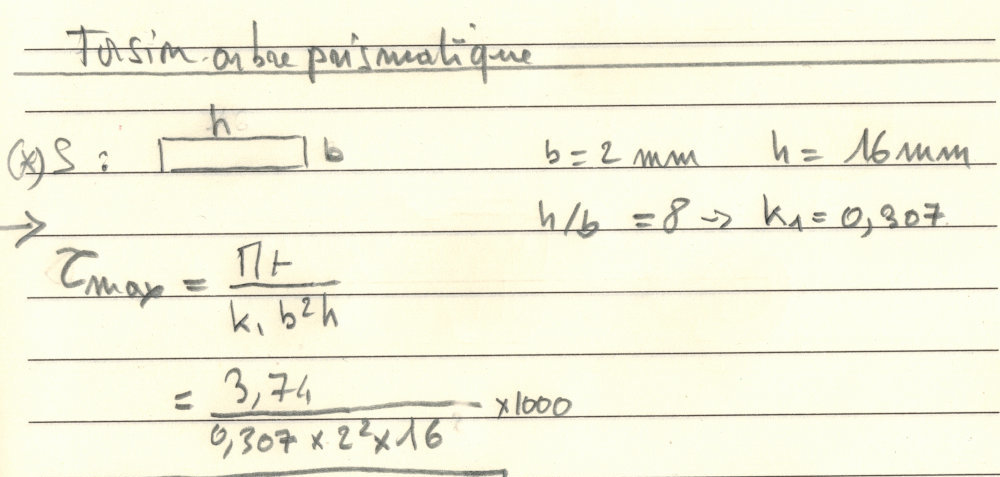 Torsion arbre prismatique
h
(x) S : b b = 2 mm h = 16 mm
→ h/b = 8 → k₁ = 0,307
τmax = Mt / k₁ b² h
= 3,74 / 0,307 x 2² x 16 x1000